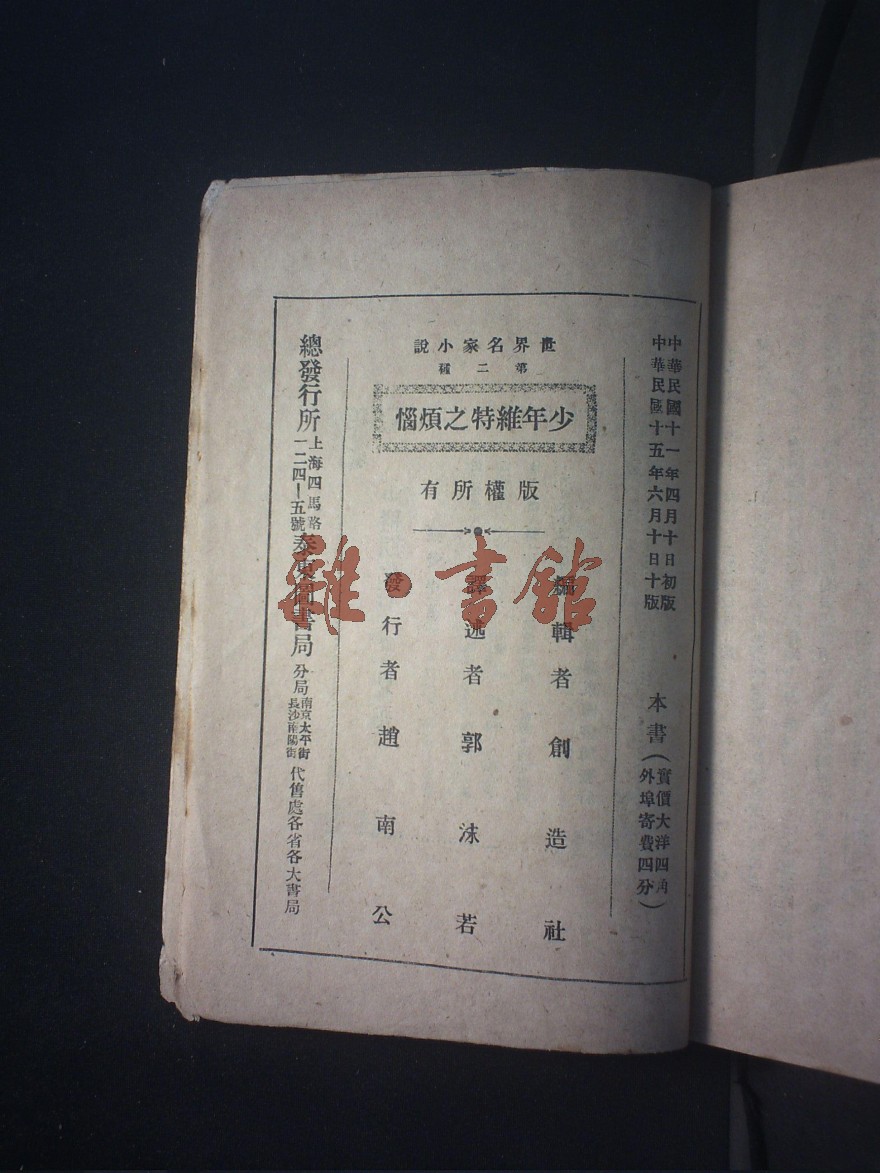 中華民國十一年四月十日初版
中華民國十五年六月十日十版
本書（實價大洋四角
外埠寄費四分）
世界名家小說
第二種
少年維特之煩惱
版權所有
編輯者創造社
譯述者郭沫若
發行者趙南公
總發行所
上海四馬路
一二四－五號
泰東圖書局
分局
南京太平街
長沙南陽街
代售處各省各大書局
雜·書館